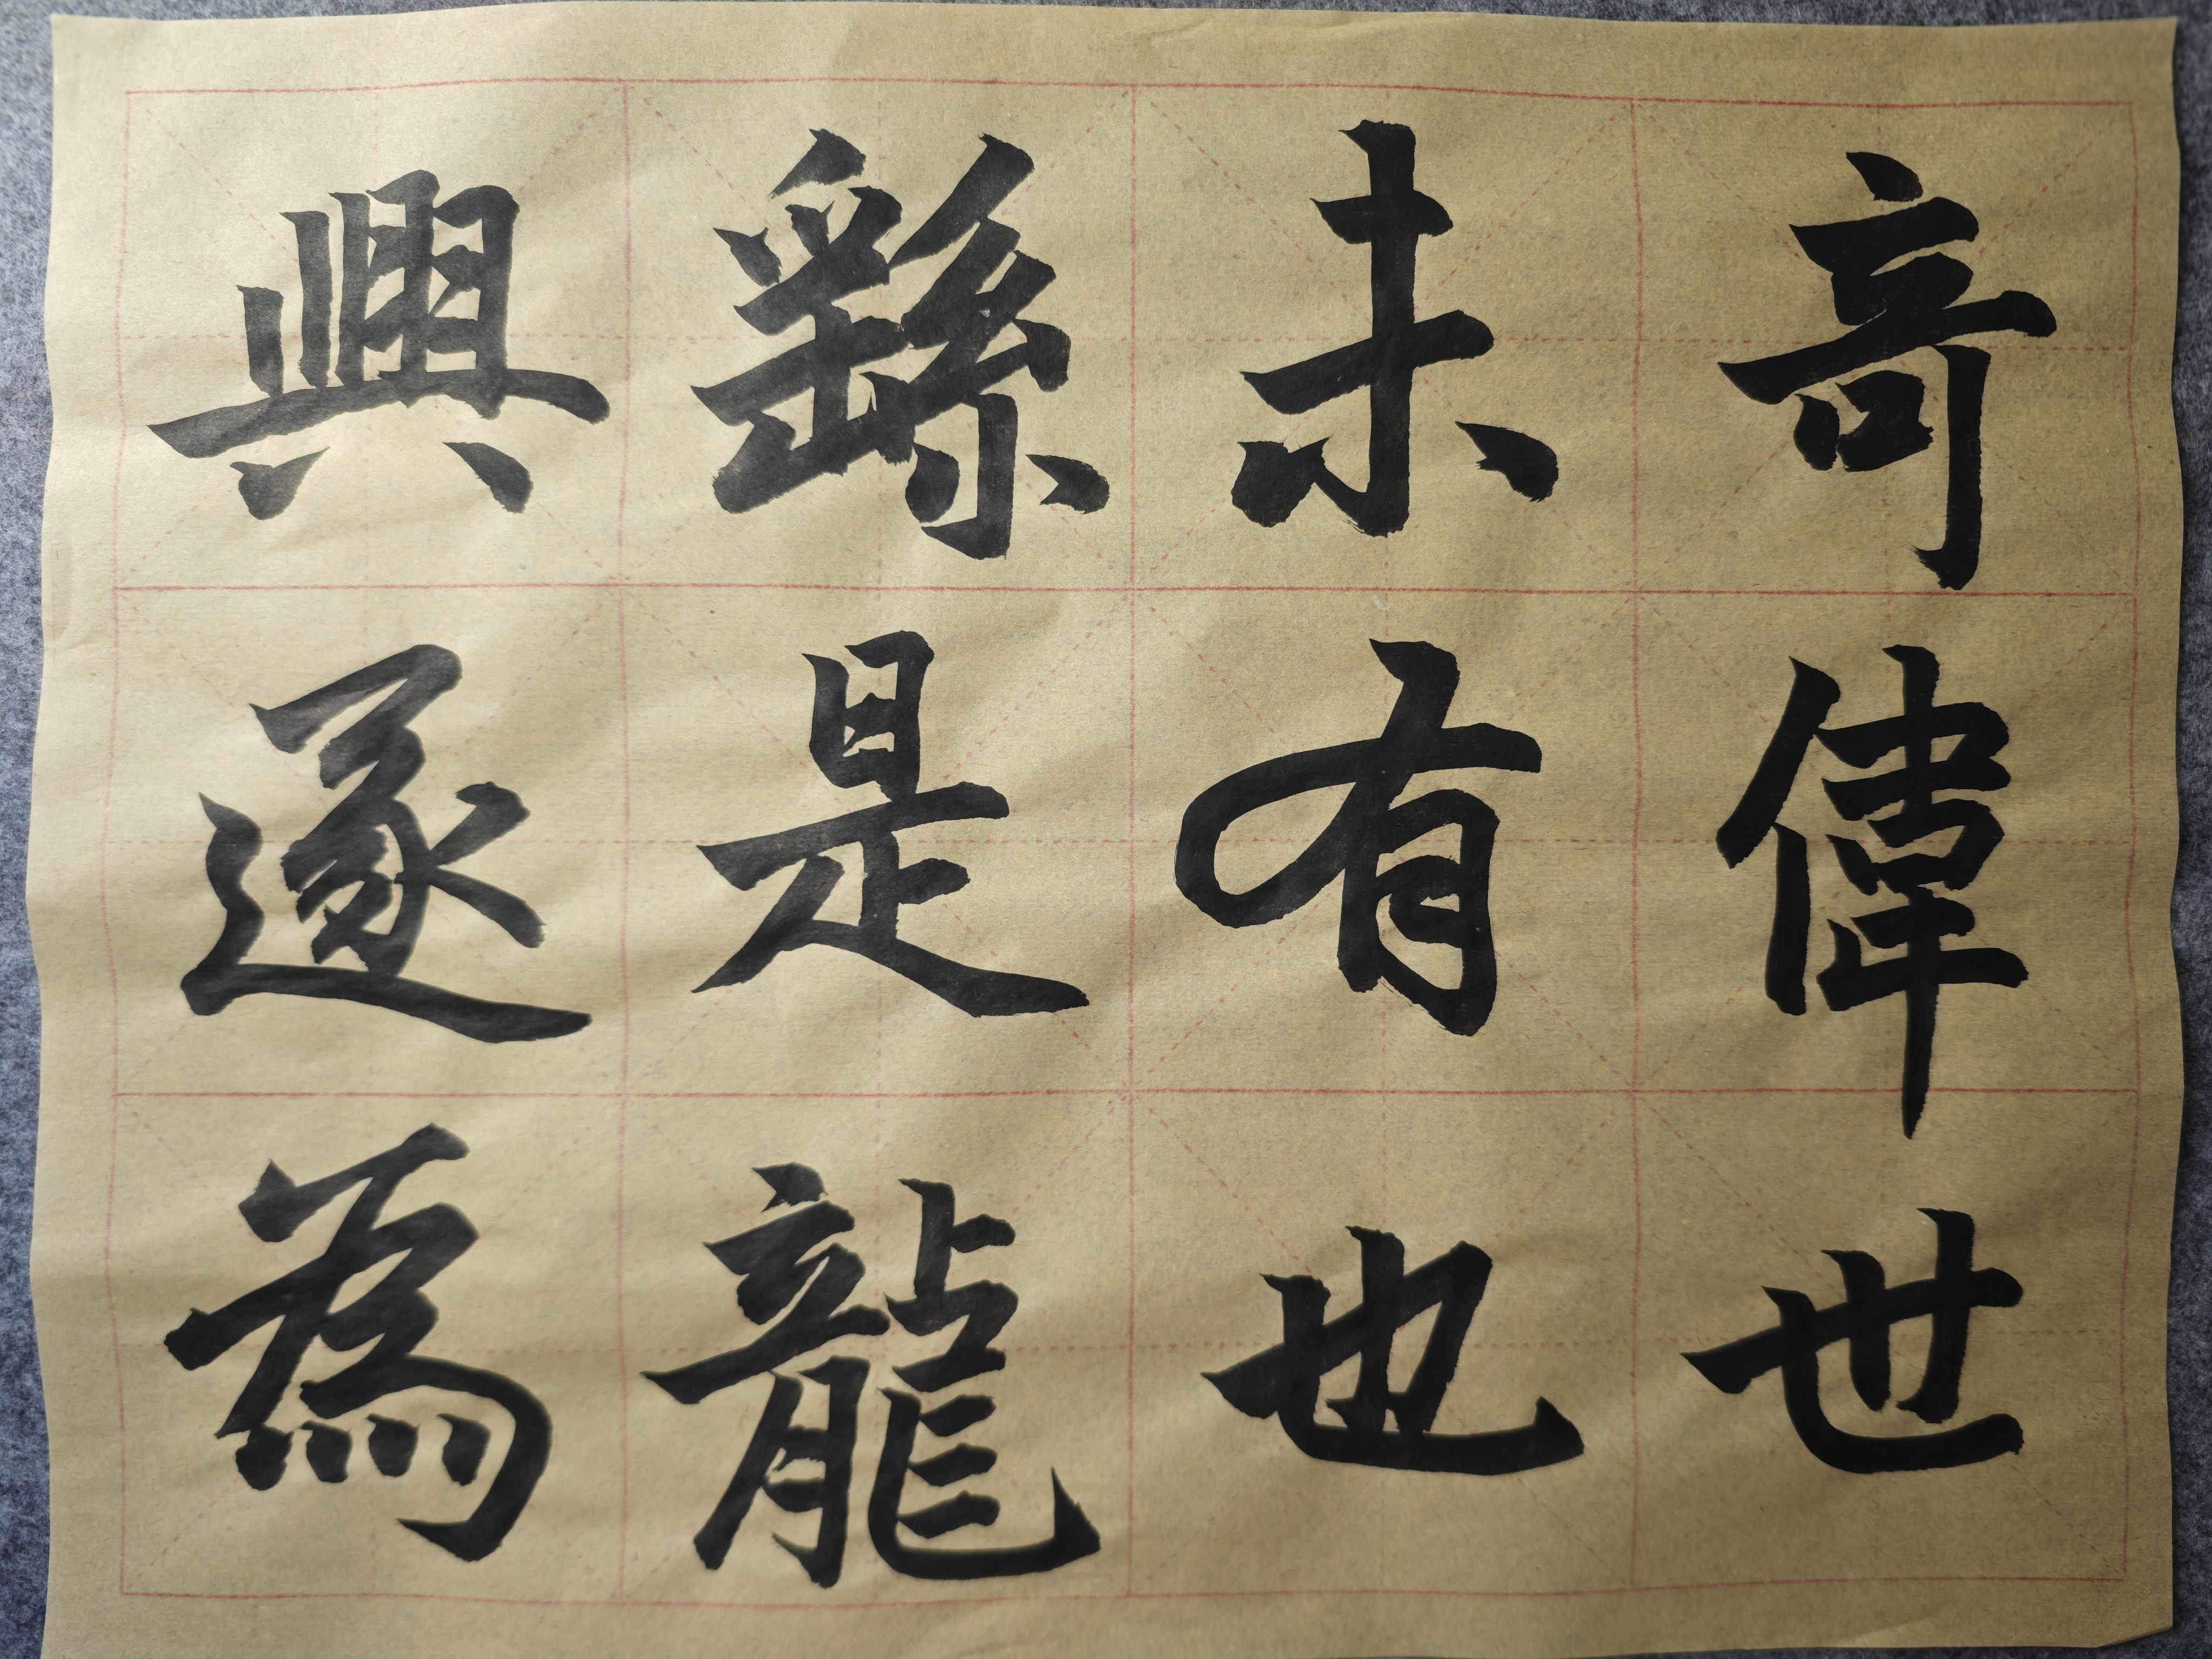 奇偉世
未有也
繇是龍
興遂為